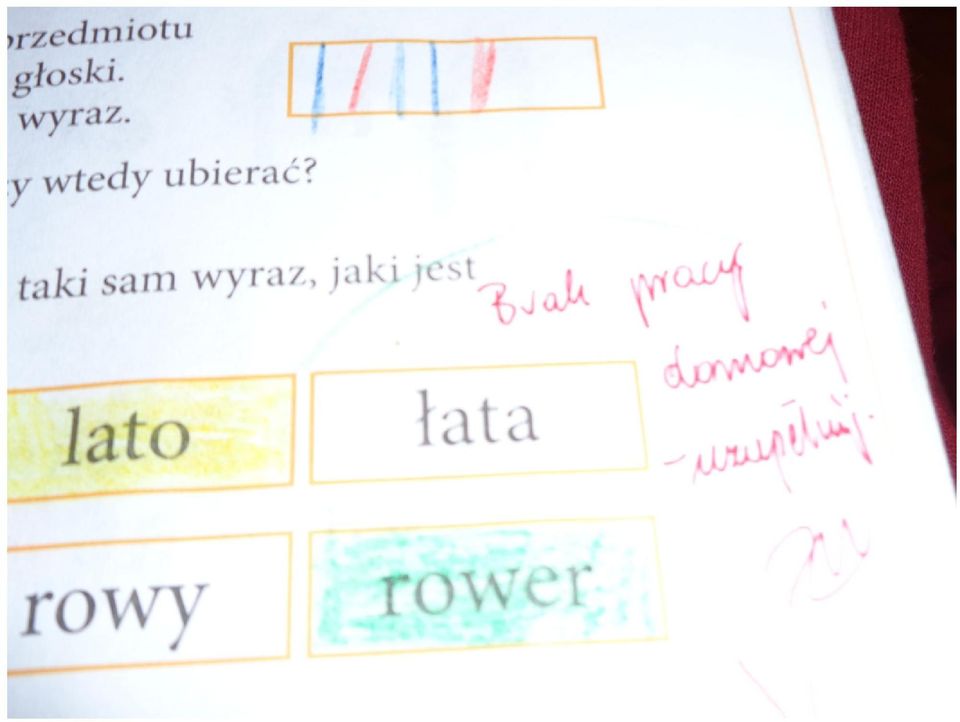 przedmiotu
głoski.
wyraz.
y wtedy ubierać?
taki sam wyraz, jaki jest
Brak pracy
domowej
- uzupełnij.
lato
łata
rowy
rower